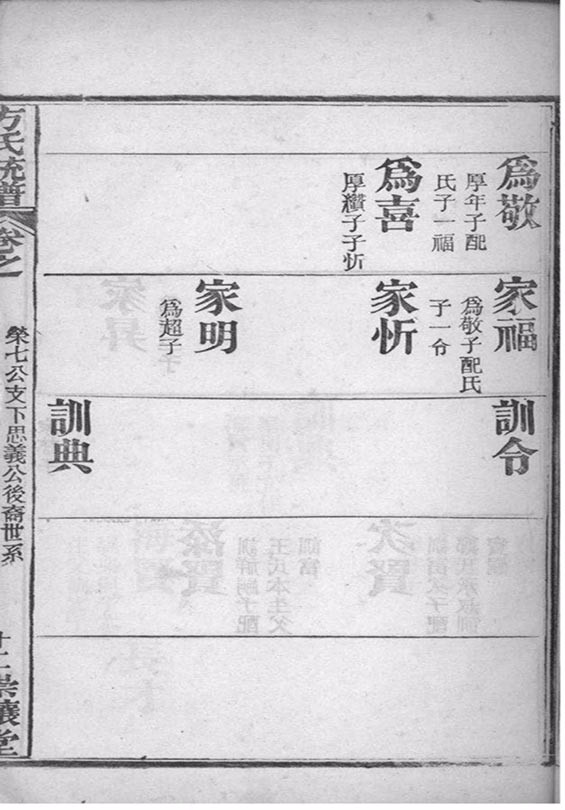 為敬
厚年子配
氏子一福
為喜
厚纘子子忻
家福
為敬子配氏
子一令
家忻
家明
為超子
訓令
訓典
方氏統譜
卷之
榮七公支下思義公後裔世系
崇讓堂